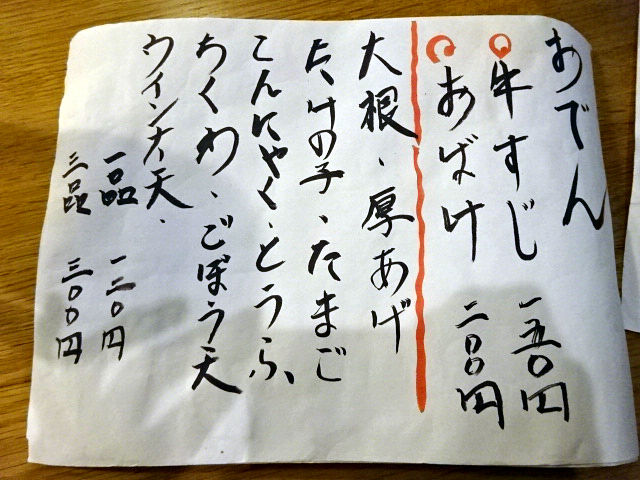 おでん
牛すじ 一五〇円
おばけ 二〇〇円
大根、厚あげ
たけの子、たまご
こんにゃく、とうふ、
ちくわ、ごぼう天
ウインナ天、
一品 一三〇円
三品 三〇〇円